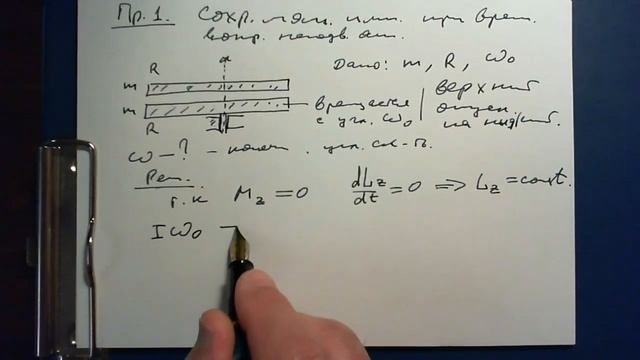 Пр. 1. Сохр. мом. имп. при вращ.
вокр. неподв. оси.
Дано: m, R, ω₀
R
m
m
R
вращается
с угл. ω₀
верхний
опуск.
на нижний.
ω — ? – конечн. угл. ск-ть.
Реш.
т. к M_z = 0 dL_z/dt = 0 => L_z = const.
I ω₀